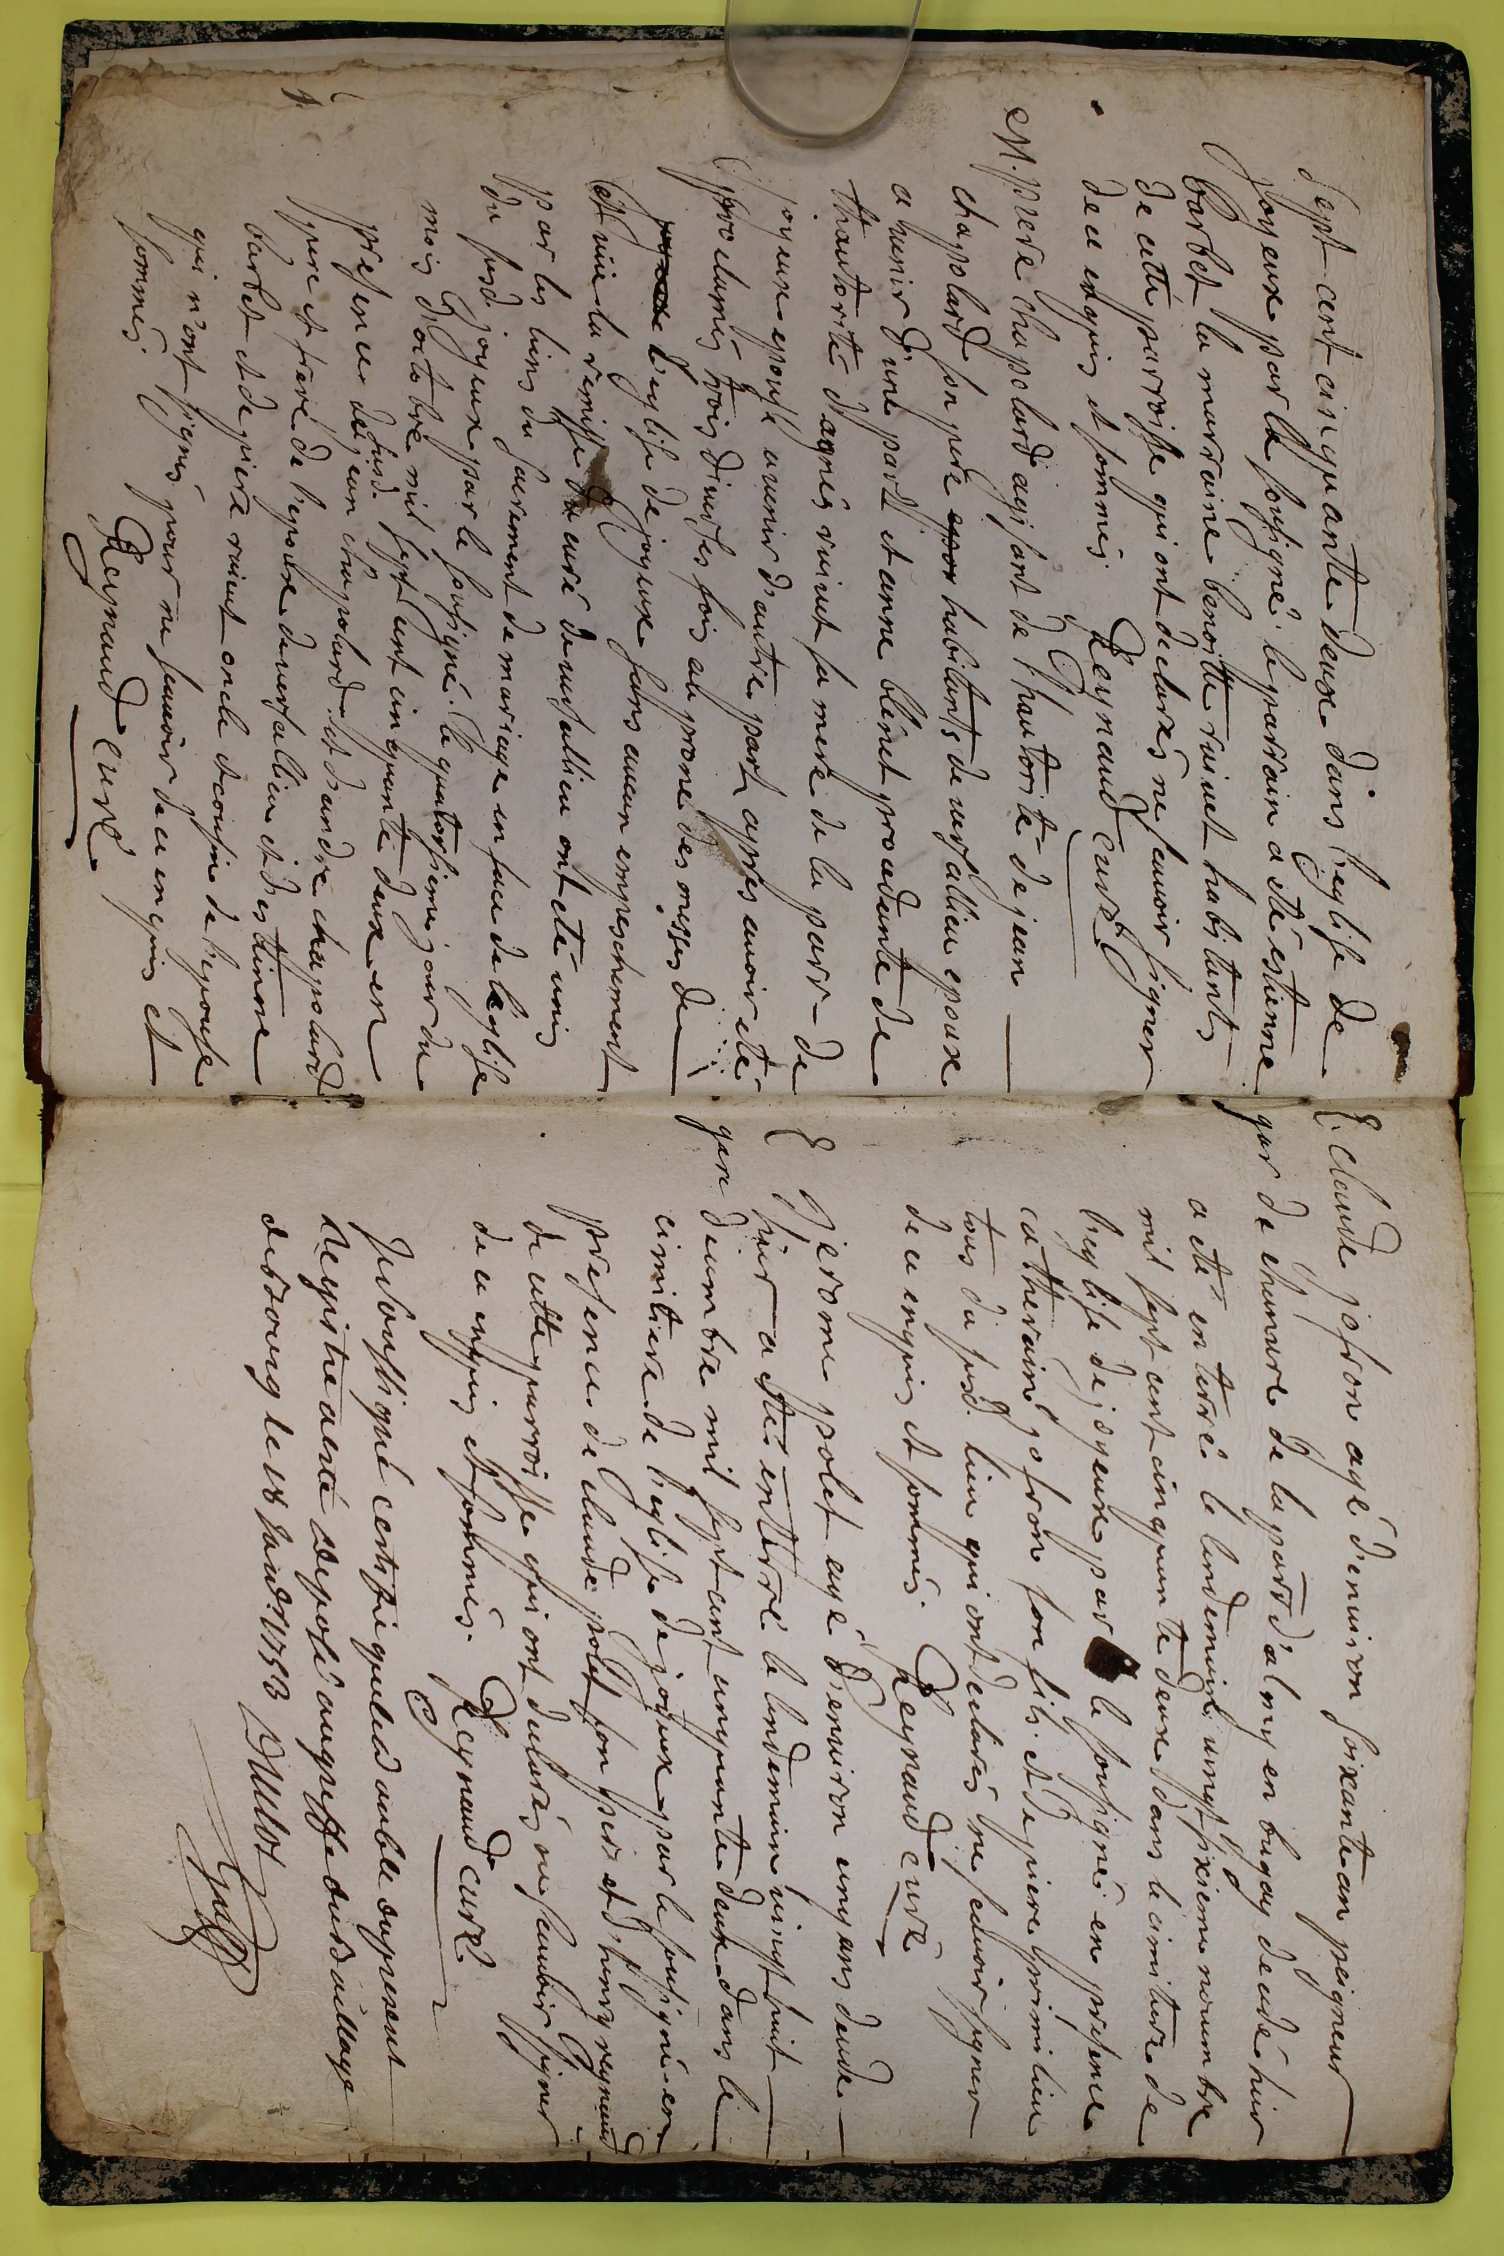 sept cent cinquante deux dans l'eglise de
Joyeux par le sousigné le parrain a eté estienne
barbet la marraine benoitte ruivet habitants
de cette parroisse qui ont declarés ne sçavoir signer
de ce enquis et sommés Reynaud curé
M. pierre chapolard agissant de l'hautorité de jean
chapolard son pere epou habitants de versallieu epoux
a l'hunir d'une part et anne blenet procedante de
l'hautorité d'agnés ruivet sa mere de la parr- de
joyeux epouse a venir d'autre part apprès avoir eté
proclamés trois diverses fois au prone des messes de
joyeux l'eglise de joyeux sans aucun empeschement
et vue la remisse du curé de versallieu ont eté unis
par les liens du sacrement de mariage en face de l'eglise
du susd. joyeux par le sousigné le quatorsieme jour du
mois d'octobre mil sept cent cinquante deux en
presence du susd. jean chapolard et d'andré chapolard
pere et frere de l'epoux de versallieu et d'estienne
barbet et de pierre ruivet oncle et cousin de l'epouse
qui n'ont signés pour ne sçavoir de ce enquis et
sommés. Reynaud curé
E. claude jofron agé d'environ soixante an peigneur
gar de chanvre de la parr. d'almy en bugey decedé hier
a eté enterré le lendemain vingt sixieme novembre
mil sept cent cinquante deux dans le cimitiere de
l'eglise de joyeux par le sousigné en presence
catherain jofron son fils et de piere
tous du susd. lieu qui ont declarés ne sçavoir signer
de ce enquis et sommés. Reynaud curé
E jerome polet agé d'environ cinq ans decedé
hier a eté enterré le lendemain vingt huit
gar decembre mil sept cent cinquante deux dans le
cimitiere de l'eglise de joyeux par le sousigné en
presence de claude polet son pere et d'henry reynaud
de cette parroisse qui ont declarés ne sçavoir signer
de ce enquis et sommés. Reynaud curé
Je soussigné certifie que le double du present
Registre a esté déposé au greffe du Bailliage
de Bourg le 18 Janv. 1753